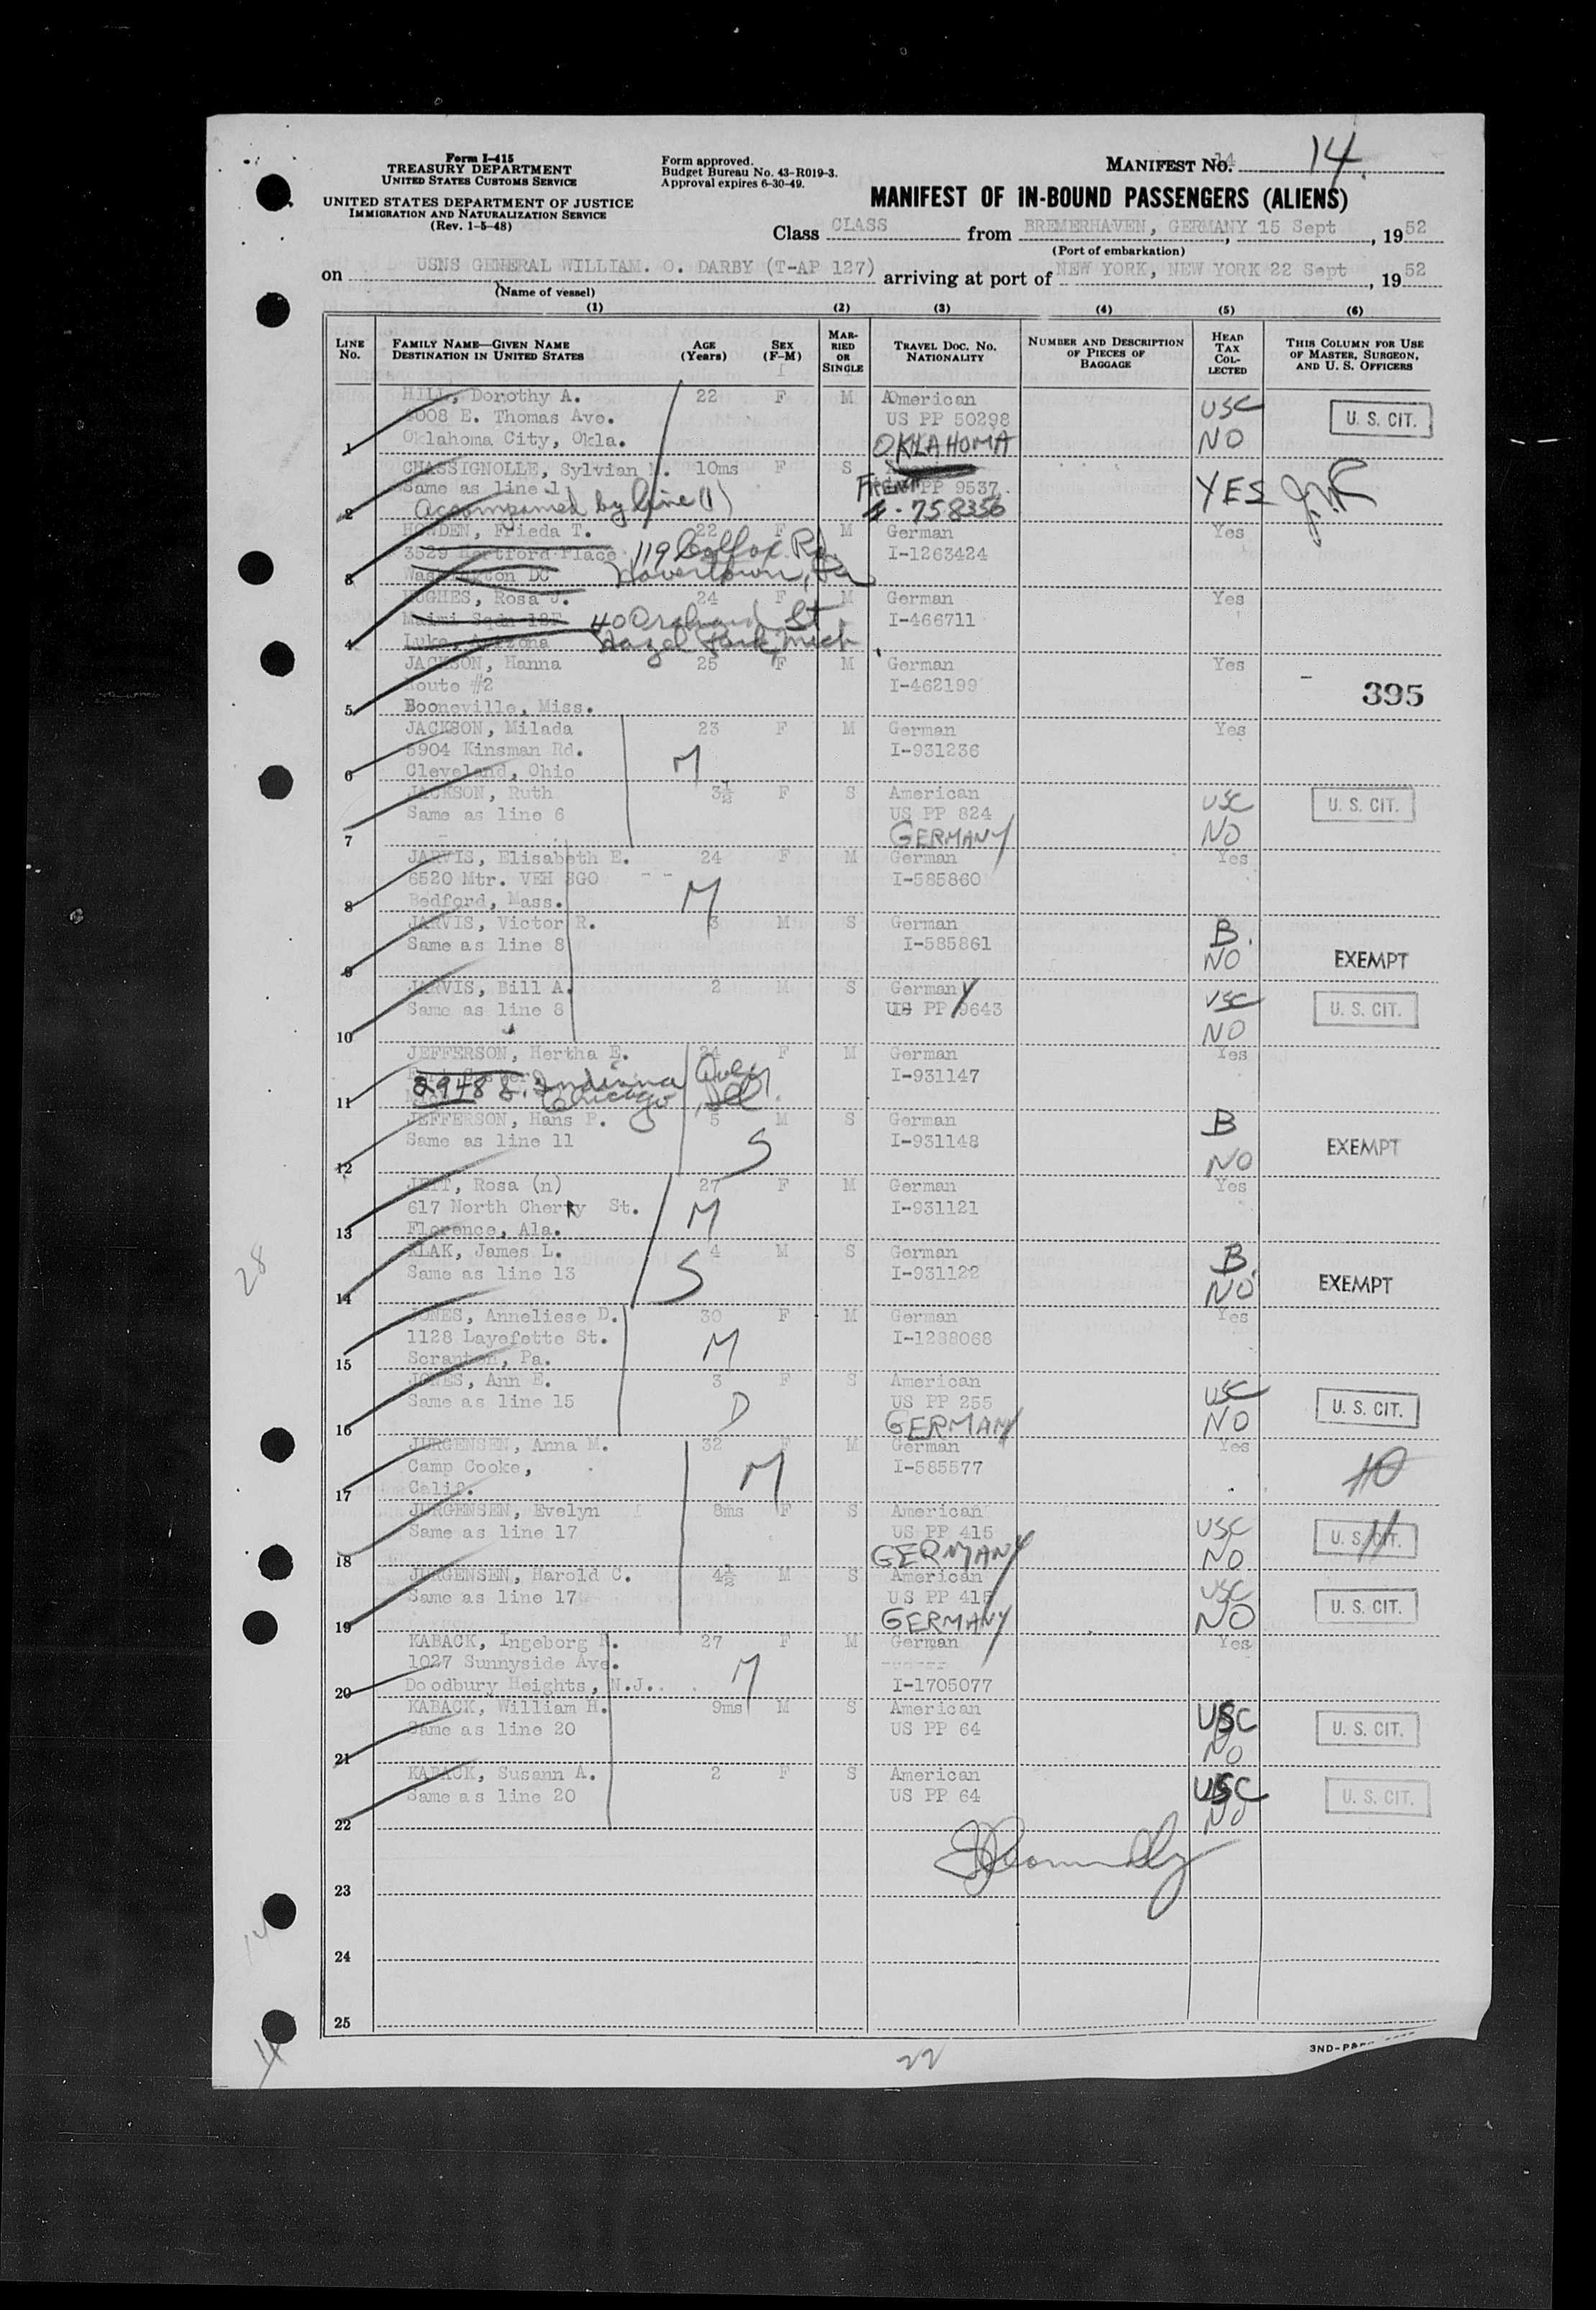 Form I-415
TREASURY DEPARTMENT
UNITED STATES CUSTOMS SERVICE
UNITED STATES DEPARTMENT OF JUSTICE
IMMIGRATION AND NATURALIZATION SERVICE
(Rev. 1-5-48)
Form approved.
Budget Bureau No. 43-R019-3.
Approval expires 6-30-49.
MANIFEST NO. 14 14
MANIFEST OF IN-BOUND PASSENGERS (ALIENS)
Class CLASS from BREMERHAVEN, GERMANY, 15 Sept, 1952
(Port of embarkation)
on USNS GENERAL WILLIAM. O. DARBY (T-AP 127) arriving at port of NEW YORK, NEW YORK 22 Sept, 1952
(Name of vessel)
(1) (2) (3) (4) (5) (6)
LINE No. FAMILY NAME—GIVEN NAME DESTINATION IN UNITED STATES AGE (Years) SEX (F-M) MARRIED OR SINGLE TRAVEL DOC. NO. NATIONALITY NUMBER AND DESCRIPTION OF PIECES OF BAGGAGE HEAD TAX COLLECTED THIS COLUMN FOR USE OF MASTER, SURGEON, AND U. S. OFFICERS
HILL, Dorothy A. 22 F M American USC U. S. CIT.
4008 E. Thomas Ave. US PP 50298
1 Oklahoma City, Okla. OKLAHOMA NO
CHASSIGNOLLE, Sylvian M. 10ms F S
Same as line 1 PP 9537 YES
2 Accompanied by line (1) 758356
HOWDEN, Frieda T. 22 F M German Yes
3529 Hertford Place 119 Colfax Rd. I-1263424
3 Washington DC Havertown, Pa
HUGHES, Rosa J. 24 F M German Yes
Maimi Sqdn 40 Orchard St I-466711
4 Luke, Arizona Hazel Park, Mich
JACKSON, Hanna 25 F M German Yes
Route #2 I-462199 395
5 Booneville, Miss.
JACKSON, Milada 23 F M German Yes
5904 Kinsman Rd. M I-931236
6 Cleveland, Ohio
JACKSON, Ruth 3½ F S American USC U. S. CIT.
Same as line 6 US PP 824
7 GERMANY NO
JARVIS, Elisabeth E. 24 F M German Yes
6520 Mtr. VEH SGO M I-585860
8 Bedford, Mass.
JARVIS, Victor R. 3 M S German B.
Same as line 8 I-585861 NO EXEMPT
9
JARVIS, Bill A. 2 M S Germany USC
Same as line 8 US PP 9643 U. S. CIT.
10 NO
JEFFERSON, Hertha E. 24 F M German Yes
2948 S. Indiana Ave I-931147
11 Chicago, Ill.
JEFFERSON, Hans P. 5 M S German B
Same as line 11 S I-931148 EXEMPT
12 NO
JETT, Rosa (n) 27 F M German Yes
617 North Cherry St. M I-931121
13 Florence, Ala.
KLAK, James L. 4 M S German B.
Same as line 13 S I-931122 NO EXEMPT
14
JONES, Anneliese D. 30 F M German Yes
1128 Layefette St. M I-1288068
15 Scranton, Pa.
JONES, Ann E. 3 F S American USC U. S. CIT.
Same as line 15 D US PP 255
16 GERMANY NO
JURGENSEN, Anna M. 32 F M German Yes
Camp Cooke, M I-585577 10
17 Calif.
JURGENSEN, Evelyn 8ms F S American USC U. S. CIT. 11
Same as line 17 US PP 415
18 GERMANY NO
JURGENSEN, Harold C. 4½ M S American USC U. S. CIT.
Same as line 17 US PP 415
19 GERMANY NO
KABACK, Ingeborg 27 F M German Yes
1027 Sunnyside Ave. M
20 Doodbury Heights, N.J. I-1705077
KABACK, William H. 9ms M S American USC U. S. CIT.
Same as line 20 US PP 64
21 NO
KABACK, Susann A. 2 F S American USC U. S. CIT.
Same as line 20 US PP 64
22 NO
23
24
25
28
22
3ND-